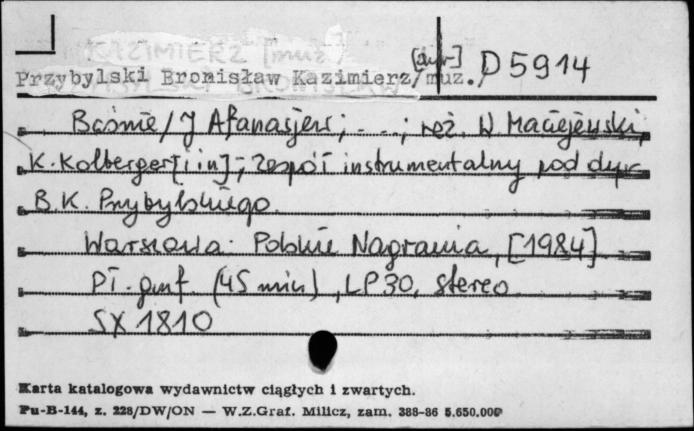 KAZIMIERZ [muz.]
[dyr-]
Przybylski Bronisław Kazimierz/muz./ D5914
Baśnie / J Afanasjew ; - - - ; reż. W. Maciejewski,
K. Kolberger [i in] ; Zespół instrumentalny pod dyr
B.K. Przybylskiego.
Warszawa : Polskie Nagrania, [1984]
Pł. gmf. (45 min), LP30, stereo
SX 1810
Karta katalogowa wydawnictw ciągłych i zwartych.
Pu-B-144, z. 228/DW/ON — W.Z.Graf. Milicz, zam. 388-86 5.650.000